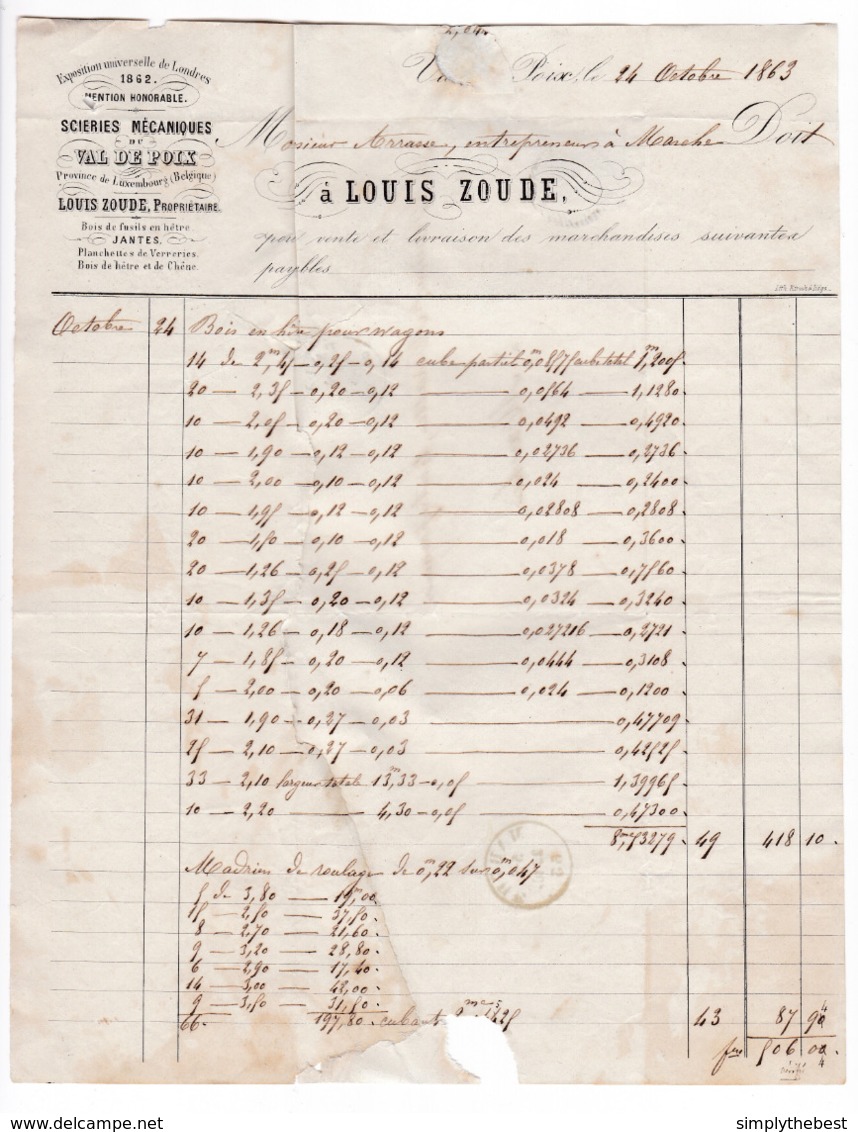 Exposition universelle de Londres
1862.
MENTION HONORABLE.
SCIERIES MÉCANIQUES
DU
VAL DE POIX
Province de Luxembourg (Belgique)
LOUIS ZOUDE, PROPRIÉTAIRE.
Bois de fusils en hêtre.
JANTES.
Planchettes de Verreries.
Bois de hêtre et de Chêne.
Poix, le 24 Octobre 1863
Monsieur Arrasse, entrepreneur à Marche Doit
à LOUIS ZOUDE,
pour vente et livraison des marchandises suivantes
paybles
Octobre 24 Bois en hêtre pour wagons
14 de 2,45 – 0,25 – 0,14 cube partiel 0,08575 cube total 1,2005
20 – 2,35 – 0,20 – 0,12 — 0,0564 — 1,1280
10 – 2,05 – 0,20 – 0,12 — 0,0492 — 0,4920
10 – 1,90 – 0,12 – 0,12 — 0,02736 — 0,2736
10 – 2,00 – 0,10 – 0,12 — 0,024 — 0,2400
10 – 1,95 – 0,12 – 0,12 — 0,02808 — 0,2808
20 – 1,50 – 0,10 – 0,12 — 0,018 — 0,3600
20 – 1,26 – 0,25 – 0,12 — 0,0378 — 0,7560
10 – 1,35 – 0,20 – 0,12 — 0,0324 — 0,3240
10 – 1,26 – 0,18 – 0,12 — 0,027216 – 0,2721
7 – 1,85 – 0,20 – 0,12 — 0,0444 — 0,3108
5 – 2,00 – 0,20 – 0,06 — 0,024 — 0,1200
31 – 1,90 – 0,27 – 0,03 — 0,47709
25 – 2,10 – 0,27 – 0,03 — 0,42525
33 – 2,10 largeur totale 13,33 – 0,05 — 1,39965
10 – 2,20 — 4,30 – 0,05 — 0,47300
8,53279 49 418 10
Madriers de roulage de 0,22 sur 0,047
5 de 3,80 — 19,00
15 – 2,50 — 37,50
8 – 2,70 — 21,60
9 – 3,20 — 28,80
6 – 2,90 — 17,40
14 – 3,00 — 42,00
9 – 3,50 — 31,50
66 197,80 cubant 43 87 90
frcs 506 00
simplythebest